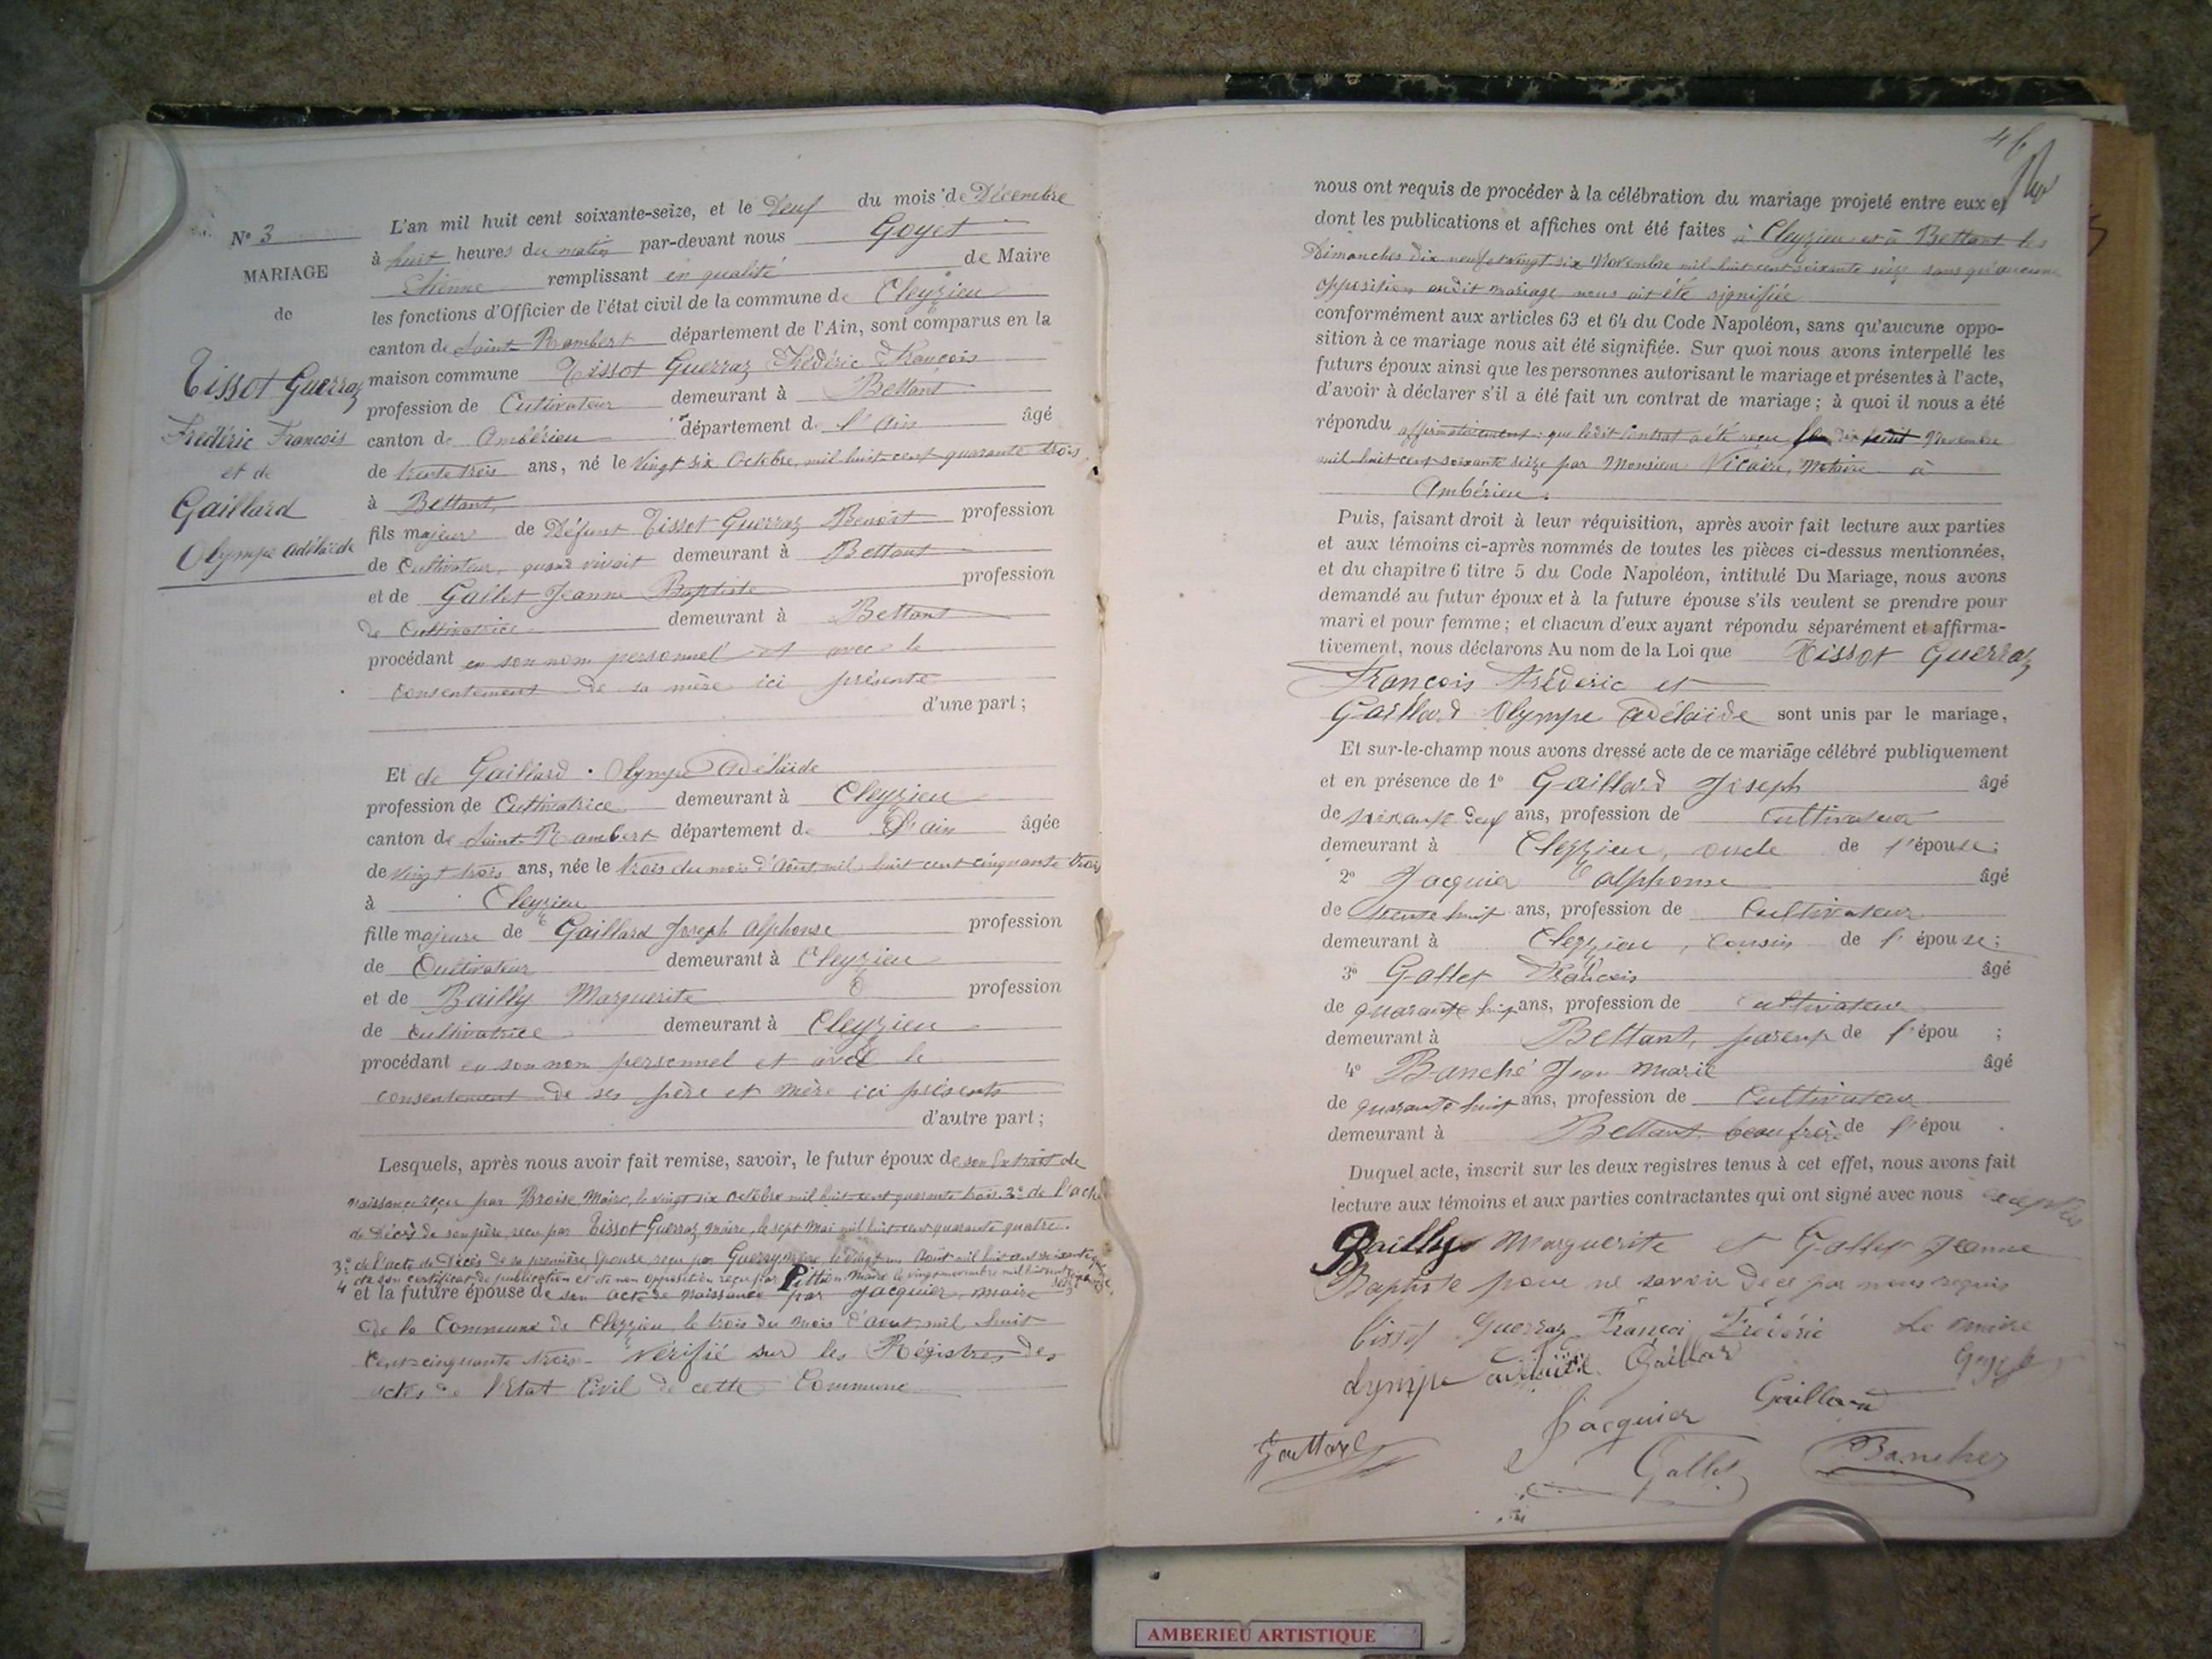 N° 3
MARIAGE
de
Tissot Guerraz
Frédéric François
et de
Gaillard
Olympe Adélaïde
L'an mil huit cent soixante-seize, et le Neuf du mois de Décembre
à huit heures du matin par-devant nous Goyet
Etienne remplissant en qualité de Maire
les fonctions d'Officier de l'état civil de la commune de Cleyzieu
canton de Saint-Rambert département de l'Ain, sont comparus en la
maison commune Tissot Guerraz Frédéric François
profession de Cultivateur demeurant à Bettant
canton de Ambérieu département de l'Ain âgé
de trente trois ans, né le vingt six Octobre, mil huit cent quarante trois
à Bettant,
fils majeur de Défunt Tissot Guerraz Benoît profession
de Cultivateur, quand vivait demeurant à Bettant
et de Gallet Jeanne Baptiste profession
de Cultivatrice demeurant à Bettant
procédant en son nom personnel et avec le
consentement de sa mère ici présente
d'une part ;
Et de Gaillard Olympe Adélaïde
profession de Cultivatrice demeurant à Cleyzieu
canton de Saint-Rambert département de l'ain âgée
de vingt trois ans, née le trois du mois d'Août, mil huit cent cinquante trois
à Cleyzieu
fille majeure de Gaillard Joseph Alphonse profession
de Cultivateur demeurant à Cleyzieu
et de Bailly Marguerite profession
de Cultivatrice demeurant à Cleyzieu
procédant en son nom personnel et avec le
consentement de ses père et mère ici présents
d'autre part ;
Lesquels, après nous avoir fait remise, savoir, le futur époux de son Extrait de
naissance reçu par Broise, Maire, le vingt six octobre mil huit cent quarante trois. de l'acte
de Décès de son père, reçu par Tissot Guerraz, maire, le sept Mai mil huit cent quarante quatre.
3° de l'acte de Décès de sa première Epouse, reçu par Août mil huit cent
4 de son certificat de publication et de non opposition reçu par Pittion Maire le vingt novembre mil huit cent
et la future épouse de son acte de naissance par Jacquier, maire
de la Commune de Cleyzieu, le trois du mois d'Août, mil huit
cent cinquante trois vérifié sur les Régistres des
actes de l'Etat Civil de cette Commune
46
nous ont requis de procéder à la célébration du mariage projeté entre eux et
dont les publications et affiches ont été faites à Cleyzieu et à Bettant les
Dimanches dix-neuf et vingt-six Novembre mil huit cent soixante seize sans qu'aucune
opposition audit mariage nous ait été signifiée
conformément aux articles 63 et 64 du Code Napoléon, sans qu'aucune oppo-
sition à ce mariage nous ait été signifiée. Sur quoi nous avons interpellé les
futurs époux ainsi que les personnes autorisant le mariage et présentes à l'acte,
d'avoir à déclarer s'il a été fait un contrat de mariage ; à quoi il nous a été
répondu affirmativement : que ledit Contrat a été reçu le dix huit Novembre
mil huit cent soixante seize par Monsieur Vicaire, Notaire à
Ambérieu.
Puis, faisant droit à leur réquisition, après avoir fait lecture aux parties
et aux témoins ci-après nommés de toutes les pièces ci-dessus mentionnées,
et du chapitre 6 titre 5 du Code Napoléon, intitulé Du Mariage, nous avons
demandé au futur époux et à la future épouse s'ils veulent se prendre pour
mari et pour femme ; et chacun d'eux ayant répondu séparément et affirma-
tivement, nous déclarons Au nom de la Loi que Tissot Guerraz
François Frédéric et
Gaillard Olympe Adélaïde sont unis par le mariage,
Et sur-le-champ nous avons dressé acte de ce mariage célébré publiquement
et en présence de 1° Gaillard Joseph âgé
de soixante neuf ans, profession de Cultivateur
demeurant à Cleyzieu, oncle de l'épouse ;
2° Jacquier Alphonse âgé
de trente huit ans, profession de Cultivateur
demeurant à Cleyzieu, Cousin de l'épouse ;
3° Gallet François âgé
de quarante huit ans, profession de Cultivateur
demeurant à Bettant, parent de l'épou ;
4° Banché Jean Marie âgé
de quarante huit ans, profession de Cultivateur
demeurant à Bettant beau frère de l'épou .
Duquel acte, inscrit sur les deux registres tenus à cet effet, nous avons fait
lecture aux témoins et aux parties contractantes qui ont signé avec nous excepté
Bailly Marguerite et Gallet Jeanne
Baptiste pour ne savoir de ce par nous requis
tissot Guerraz Françoi Frédéric Le maire
Lympe adélaïde Gaillard Goyet
Jacquier Gaillard
Gaillard Gallet Banchez
AMBERIEU ARTISTIQUE